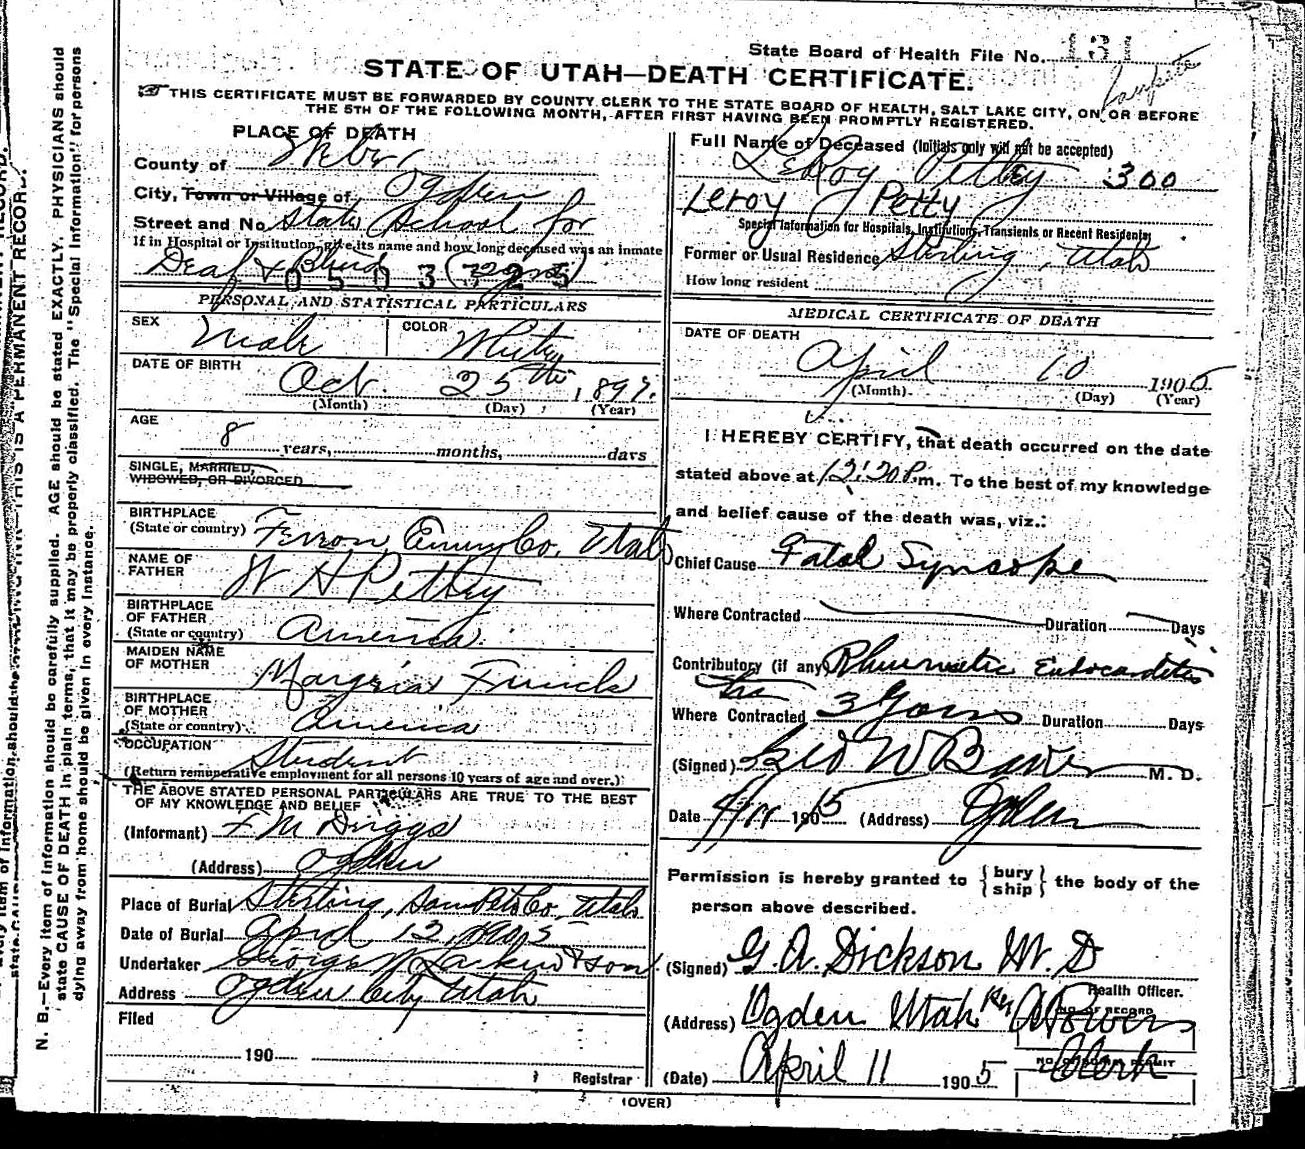 State Board of Health File No. 131
STATE OF UTAH—DEATH CERTIFICATE.
THIS CERTIFICATE MUST BE FORWARDED BY COUNTY CLERK TO THE STATE BOARD OF HEALTH, SALT LAKE CITY, ON OR BEFORE
THE 5TH OF THE FOLLOWING MONTH, AFTER FIRST HAVING BEEN PROMPTLY REGISTERED.
PLACE OF DEATH
County of Weber
City, Town or Village of Ogden
Street and No. State School for
If in Hospital or Institution, give its name and how long deceased was an inmate
Deaf & Blind
0503725
PERSONAL AND STATISTICAL PARTICULARS
SEX Male COLOR White
DATE OF BIRTH Oct. 25th, 1897.
(Month) (Day) (Year)
AGE
8 years, months, days
SINGLE, MARRIED,
WIDOWED, OR DIVORCED
BIRTHPLACE
(State or country) Ferron, Emery Co. Utah
NAME OF
FATHER W H Pettey
BIRTHPLACE
OF FATHER
(State or country) America.
MAIDEN NAME
OF MOTHER Funck
BIRTHPLACE
OF MOTHER
(State or country) America
OCCUPATION Student
(Return remunerative employment for all persons 10 years of age and over.)
THE ABOVE STATED PERSONAL PARTICULARS ARE TRUE TO THE BEST
OF MY KNOWLEDGE AND BELIEF
(Informant) F M Driggs
(Address) Ogden
Place of Burial Sterling, SanPete Co. Utah
Date of Burial April 13, 1905
Undertaker George W Larkin & Son.
Address Ogden City Utah
Filed
190
Registrar
Full Name of Deceased (Initials only will not be accepted)
LeRoy Pettey 300
Leroy Petty
Special Information for Hospitals, Institutions, Transients or Recent Residents
Former or Usual Residence Sterling, Utah
How long resident
MEDICAL CERTIFICATE OF DEATH
DATE OF DEATH
April 10 1905
(Month) (Day) (Year)
I HEREBY CERTIFY, that death occurred on the date
stated above at 12:20 P.m. To the best of my knowledge
and belief cause of the death was, viz.:
Chief Cause Fatal Syncope
Where Contracted Duration Days
Contributory (if any) Rhumatic Endocarditis
Where Contracted 3 Years Duration Days
(Signed) Geo W Baker M. D.
Date 4/11 1905 (Address) Ogden
Permission is hereby granted to {bury
ship} the body of the
person above described.
(Signed) G. A. Dickson M. D
Health Officer.
(Address) Ogden Utah Per A Powers
Clerk
(Date) April 11 1905
(OVER)
N. B.—Every item of information should be carefully supplied. AGE should be stated EXACTLY. PHYSICIANS should
state CAUSE OF DEATH in plain terms, that it may be properly classified. The "Special Information" for persons
dying away from home should be given in every instance.
THIS IS A PERMANENT RECORD.